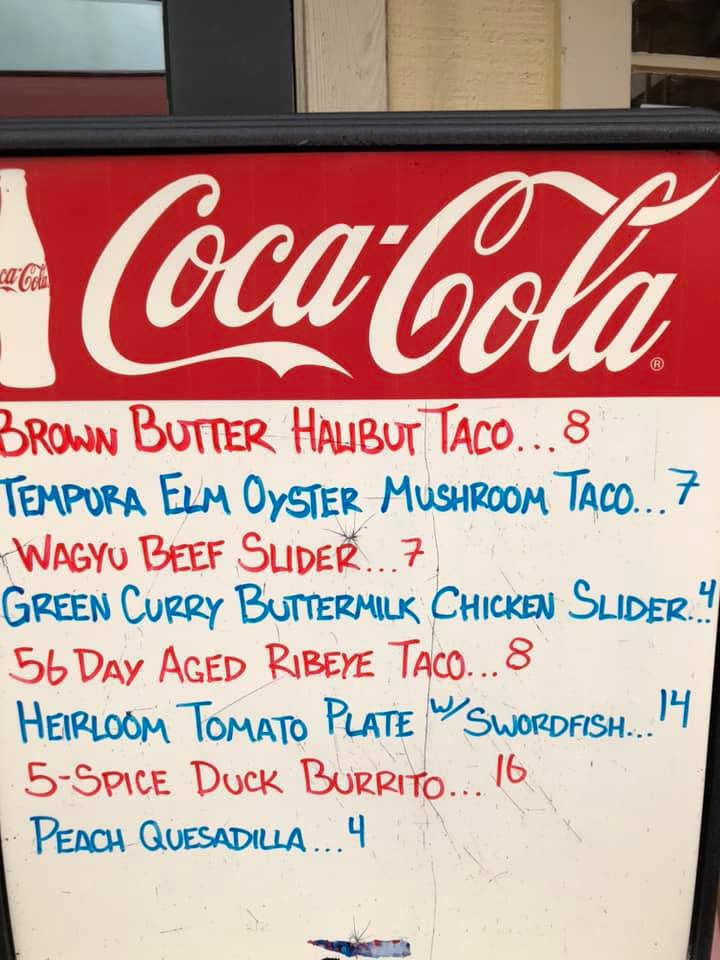 ca-Cola
Coca-Cola®
BROWN BUTTER HALIBUT TACO...8
TEMPURA ELM OYSTER MUSHROOM TACO...7
WAGYU BEEF SLIDER...7
GREEN CURRY BUTTERMILK CHICKEN SLIDER...4
56 DAY AGED RIBEYE TACO...8
HEIRLOOM TOMATO PLATE w/ SWORDFISH...14
5-SPICE DUCK BURRITO...16
PEACH QUESADILLA...4